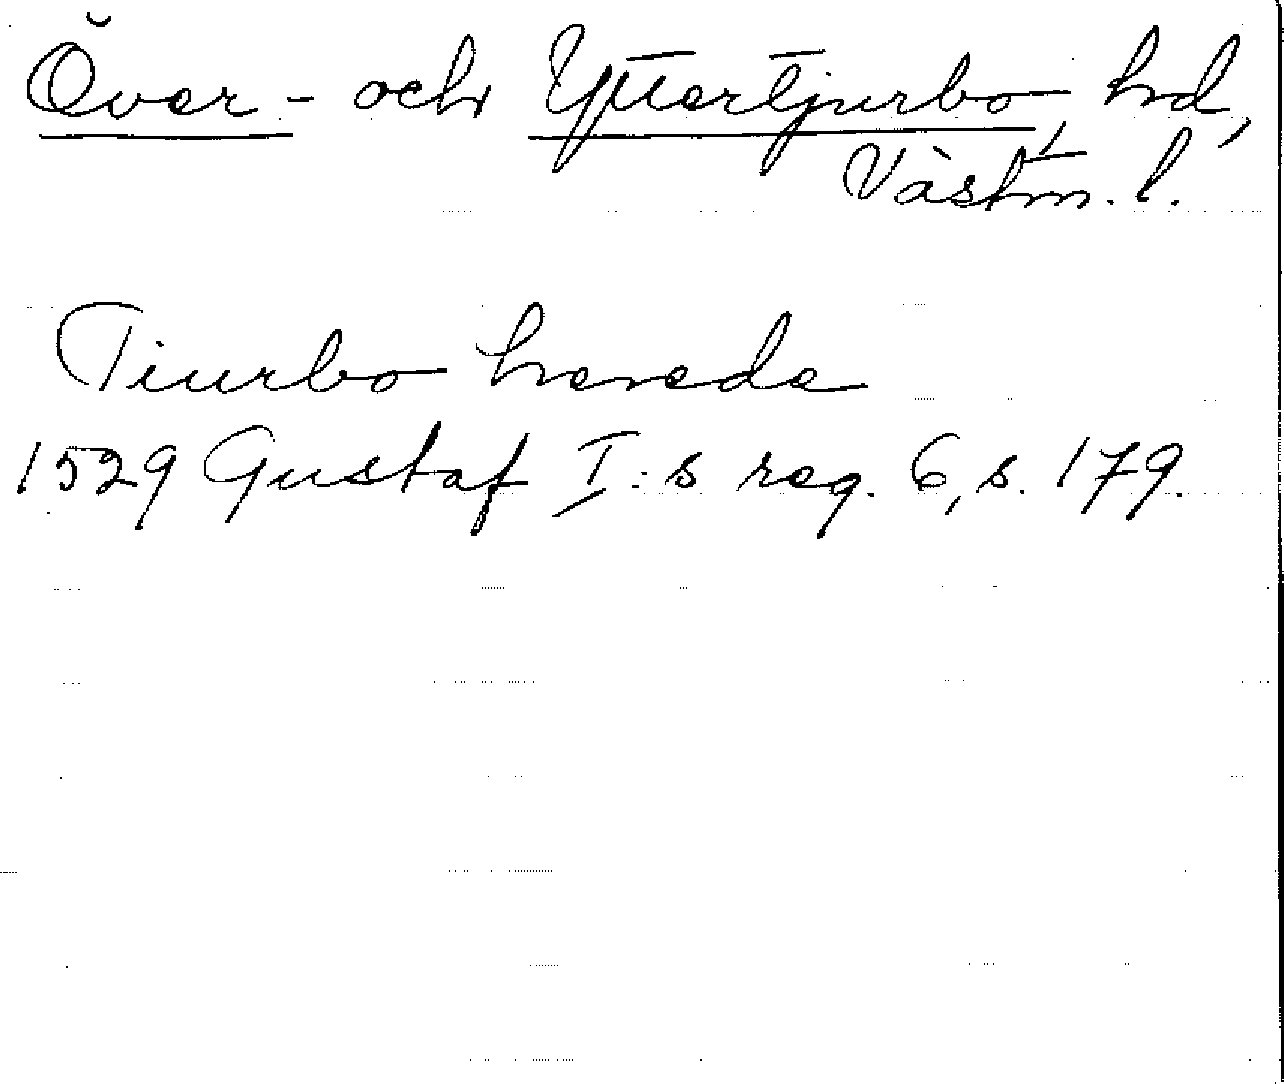 Över- och Yttertjurbo hd,
Västm. l.
Tiurbo herede
1529 Gustaf I:s reg. 6, s. 179.